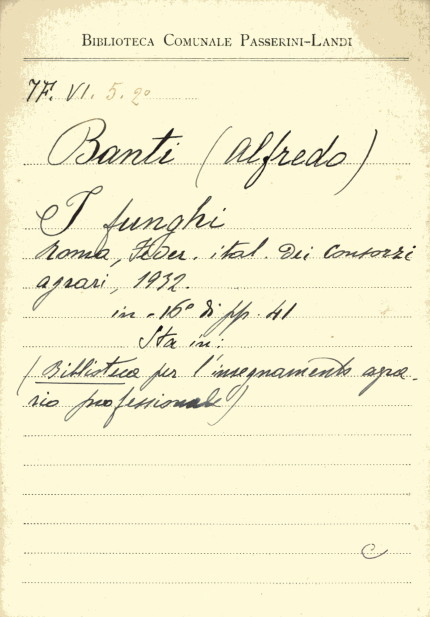 BIBLIOTECA COMUNALE PASSERINI-LANDI
7F. VI. 5. 2º
Banti (Alfredo)
I funghi
Roma, Feder. ital. dei consorzi
agrari, 1932.
in-16º di pp. 41
Sta in:
(Biblioteca per l'insegnamento agra-
rio professionale)
C